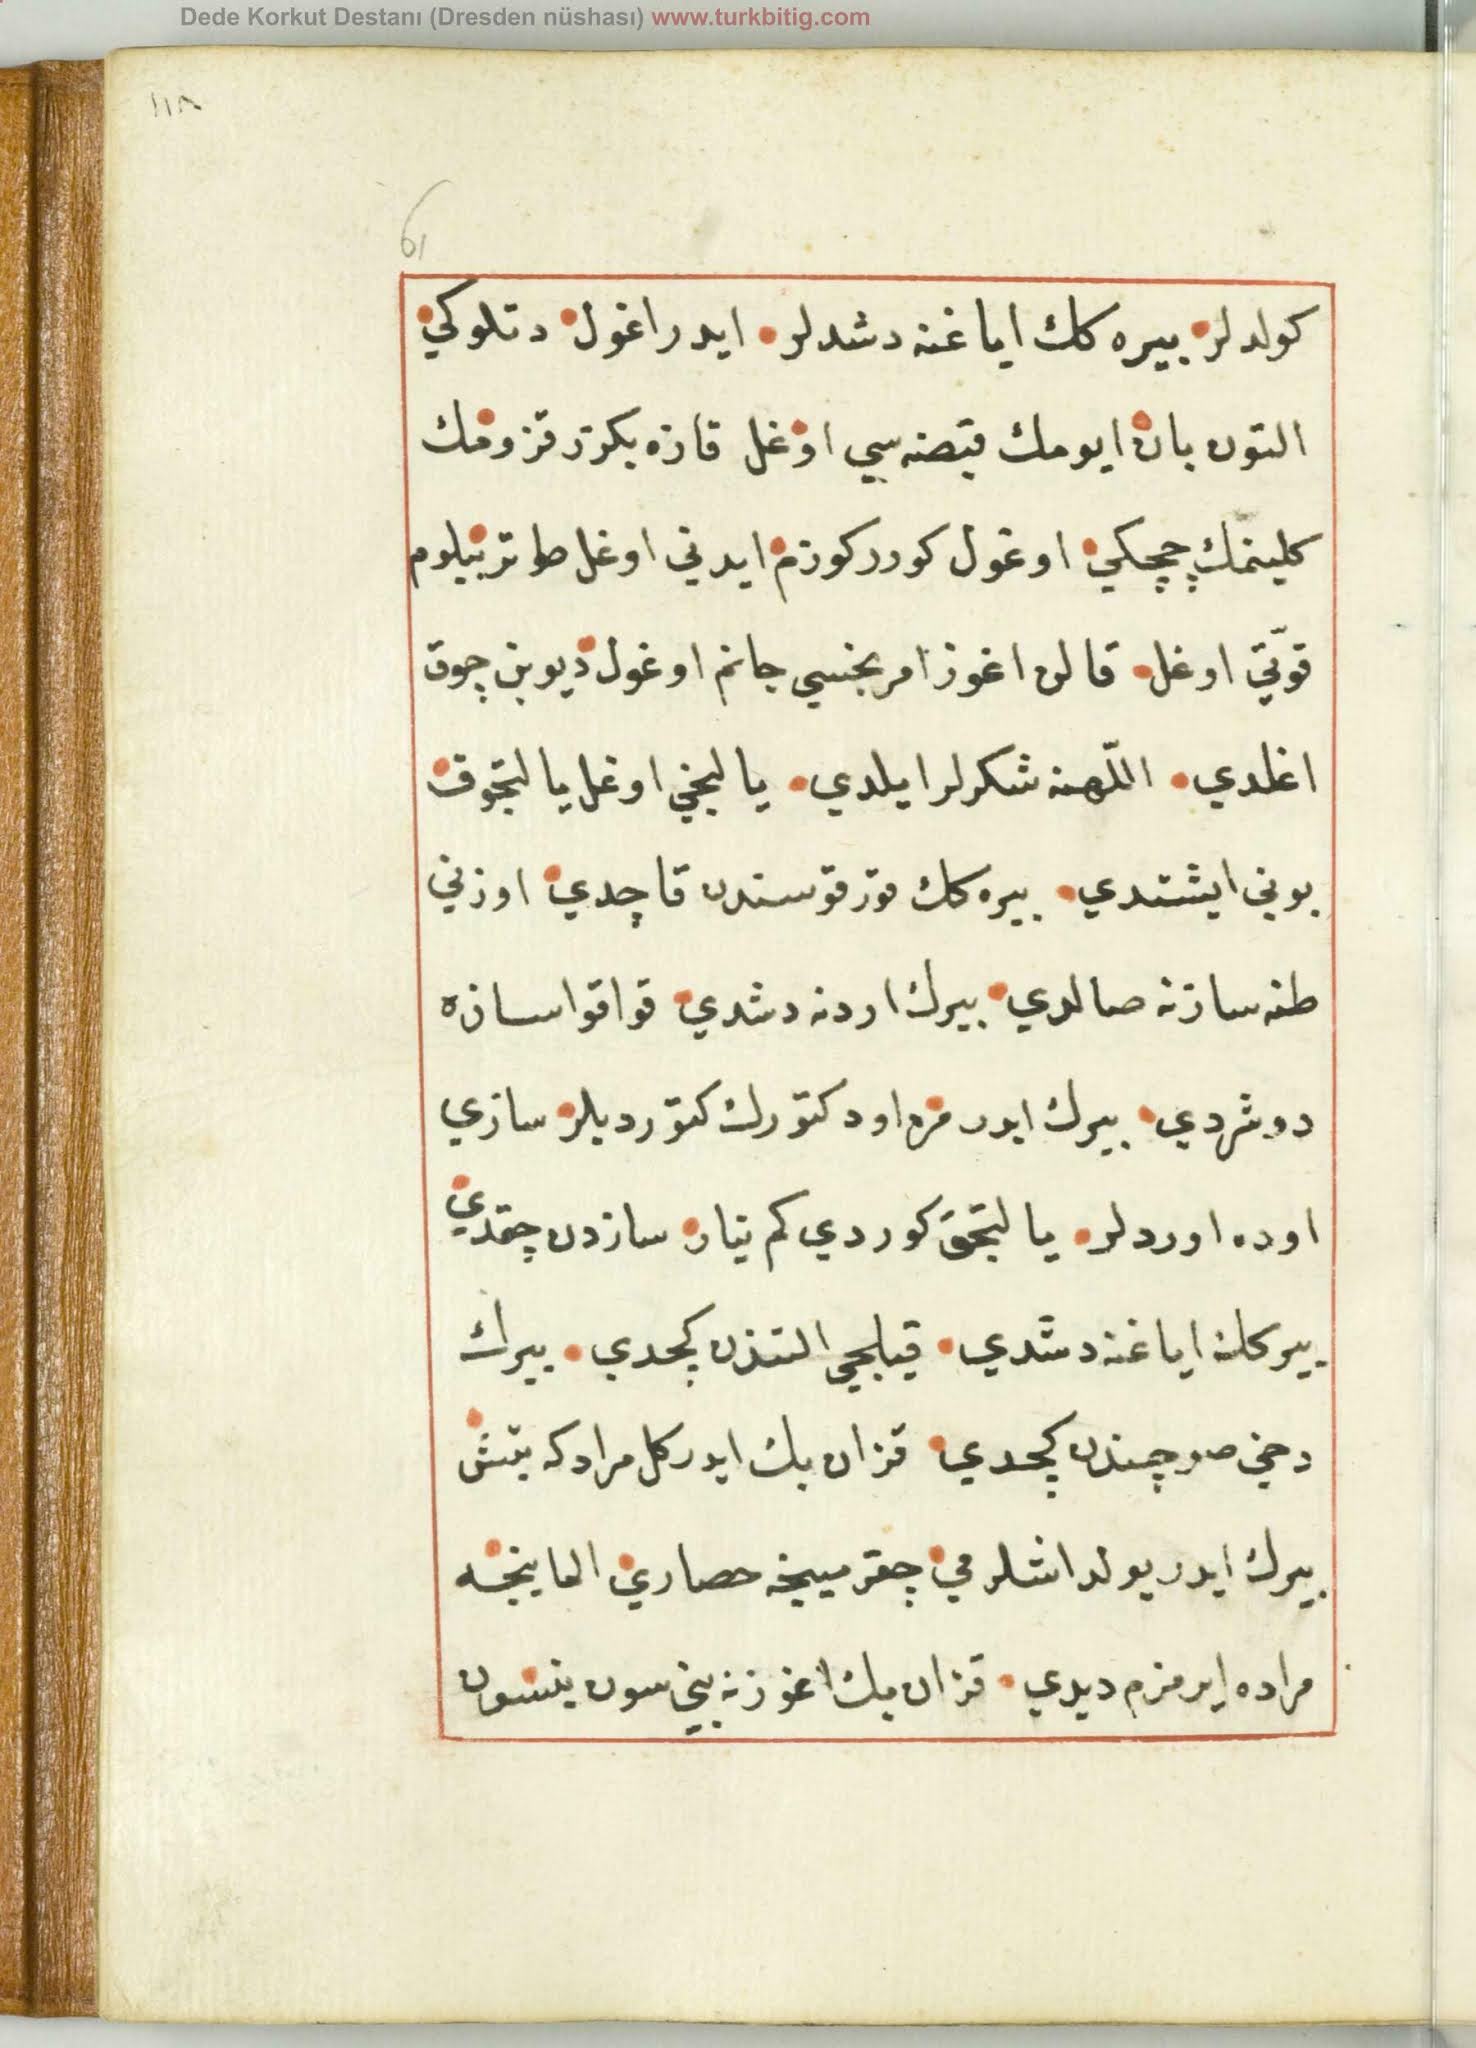 Dede Korkut Destanı (Dresden nüshası) www.turkbitig.com
١١٨
61
كولدلر بيره كك اياغنه دشدلر ايدر اغول دتلوكي
التون بان ايومك قبضه سي اوغل قازه بكزر قزومك
كلينمك چچكي اوغول كورر كوزم ايدني اوغل طوتر بيلوم
قوّتي اوغل قالن اغوز امرنجسي جانم اوغول ديوبن چوق
اغلدي اللّهنه شكرلر ايلدي يالنجي اوغل يالنجوق
بوني ايشتدي بيره كك قورقوسندن قاچدي اوزني
طنه سازنه صالدي بيرك اردنه دشدي قوا قوا سازه
دوشردي بيرك ايدر مره اود كتورك كتورديلر سازي
اوده اوردلر يالنجق كوردي كم ينار سازدن چقدي
بيركك اياغنه دشدي قيلجي التندن كچدي بيرك
دخي صوچندن كچدي قزان بك ايدر كل مرادكه يتش
بيرك ايدر يولداشلرمي چقرمينجه حصاري الماينجه
مراده ايرمزم ديدي قزان بك اغوزنه بيني سون بنسون